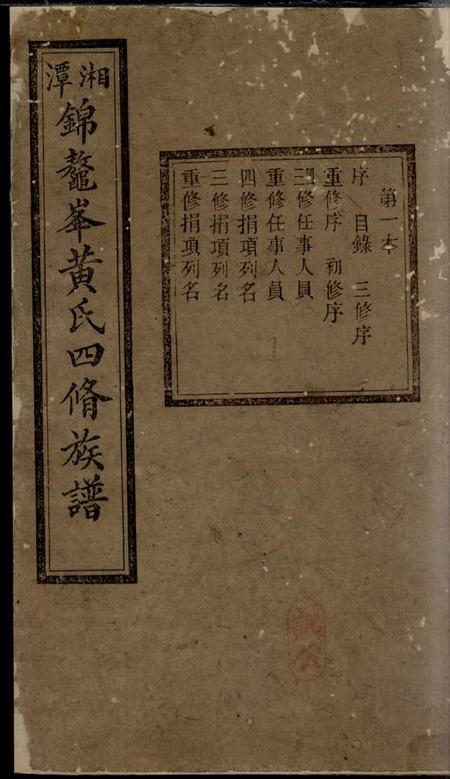 湘潭
錦鼇峯黃氏四脩族譜
第一本
序 目錄 三修序
重修序 初修序
三修任事人員
重修任事人員
四修捐項列名
三修捐項列名
重修捐項列名